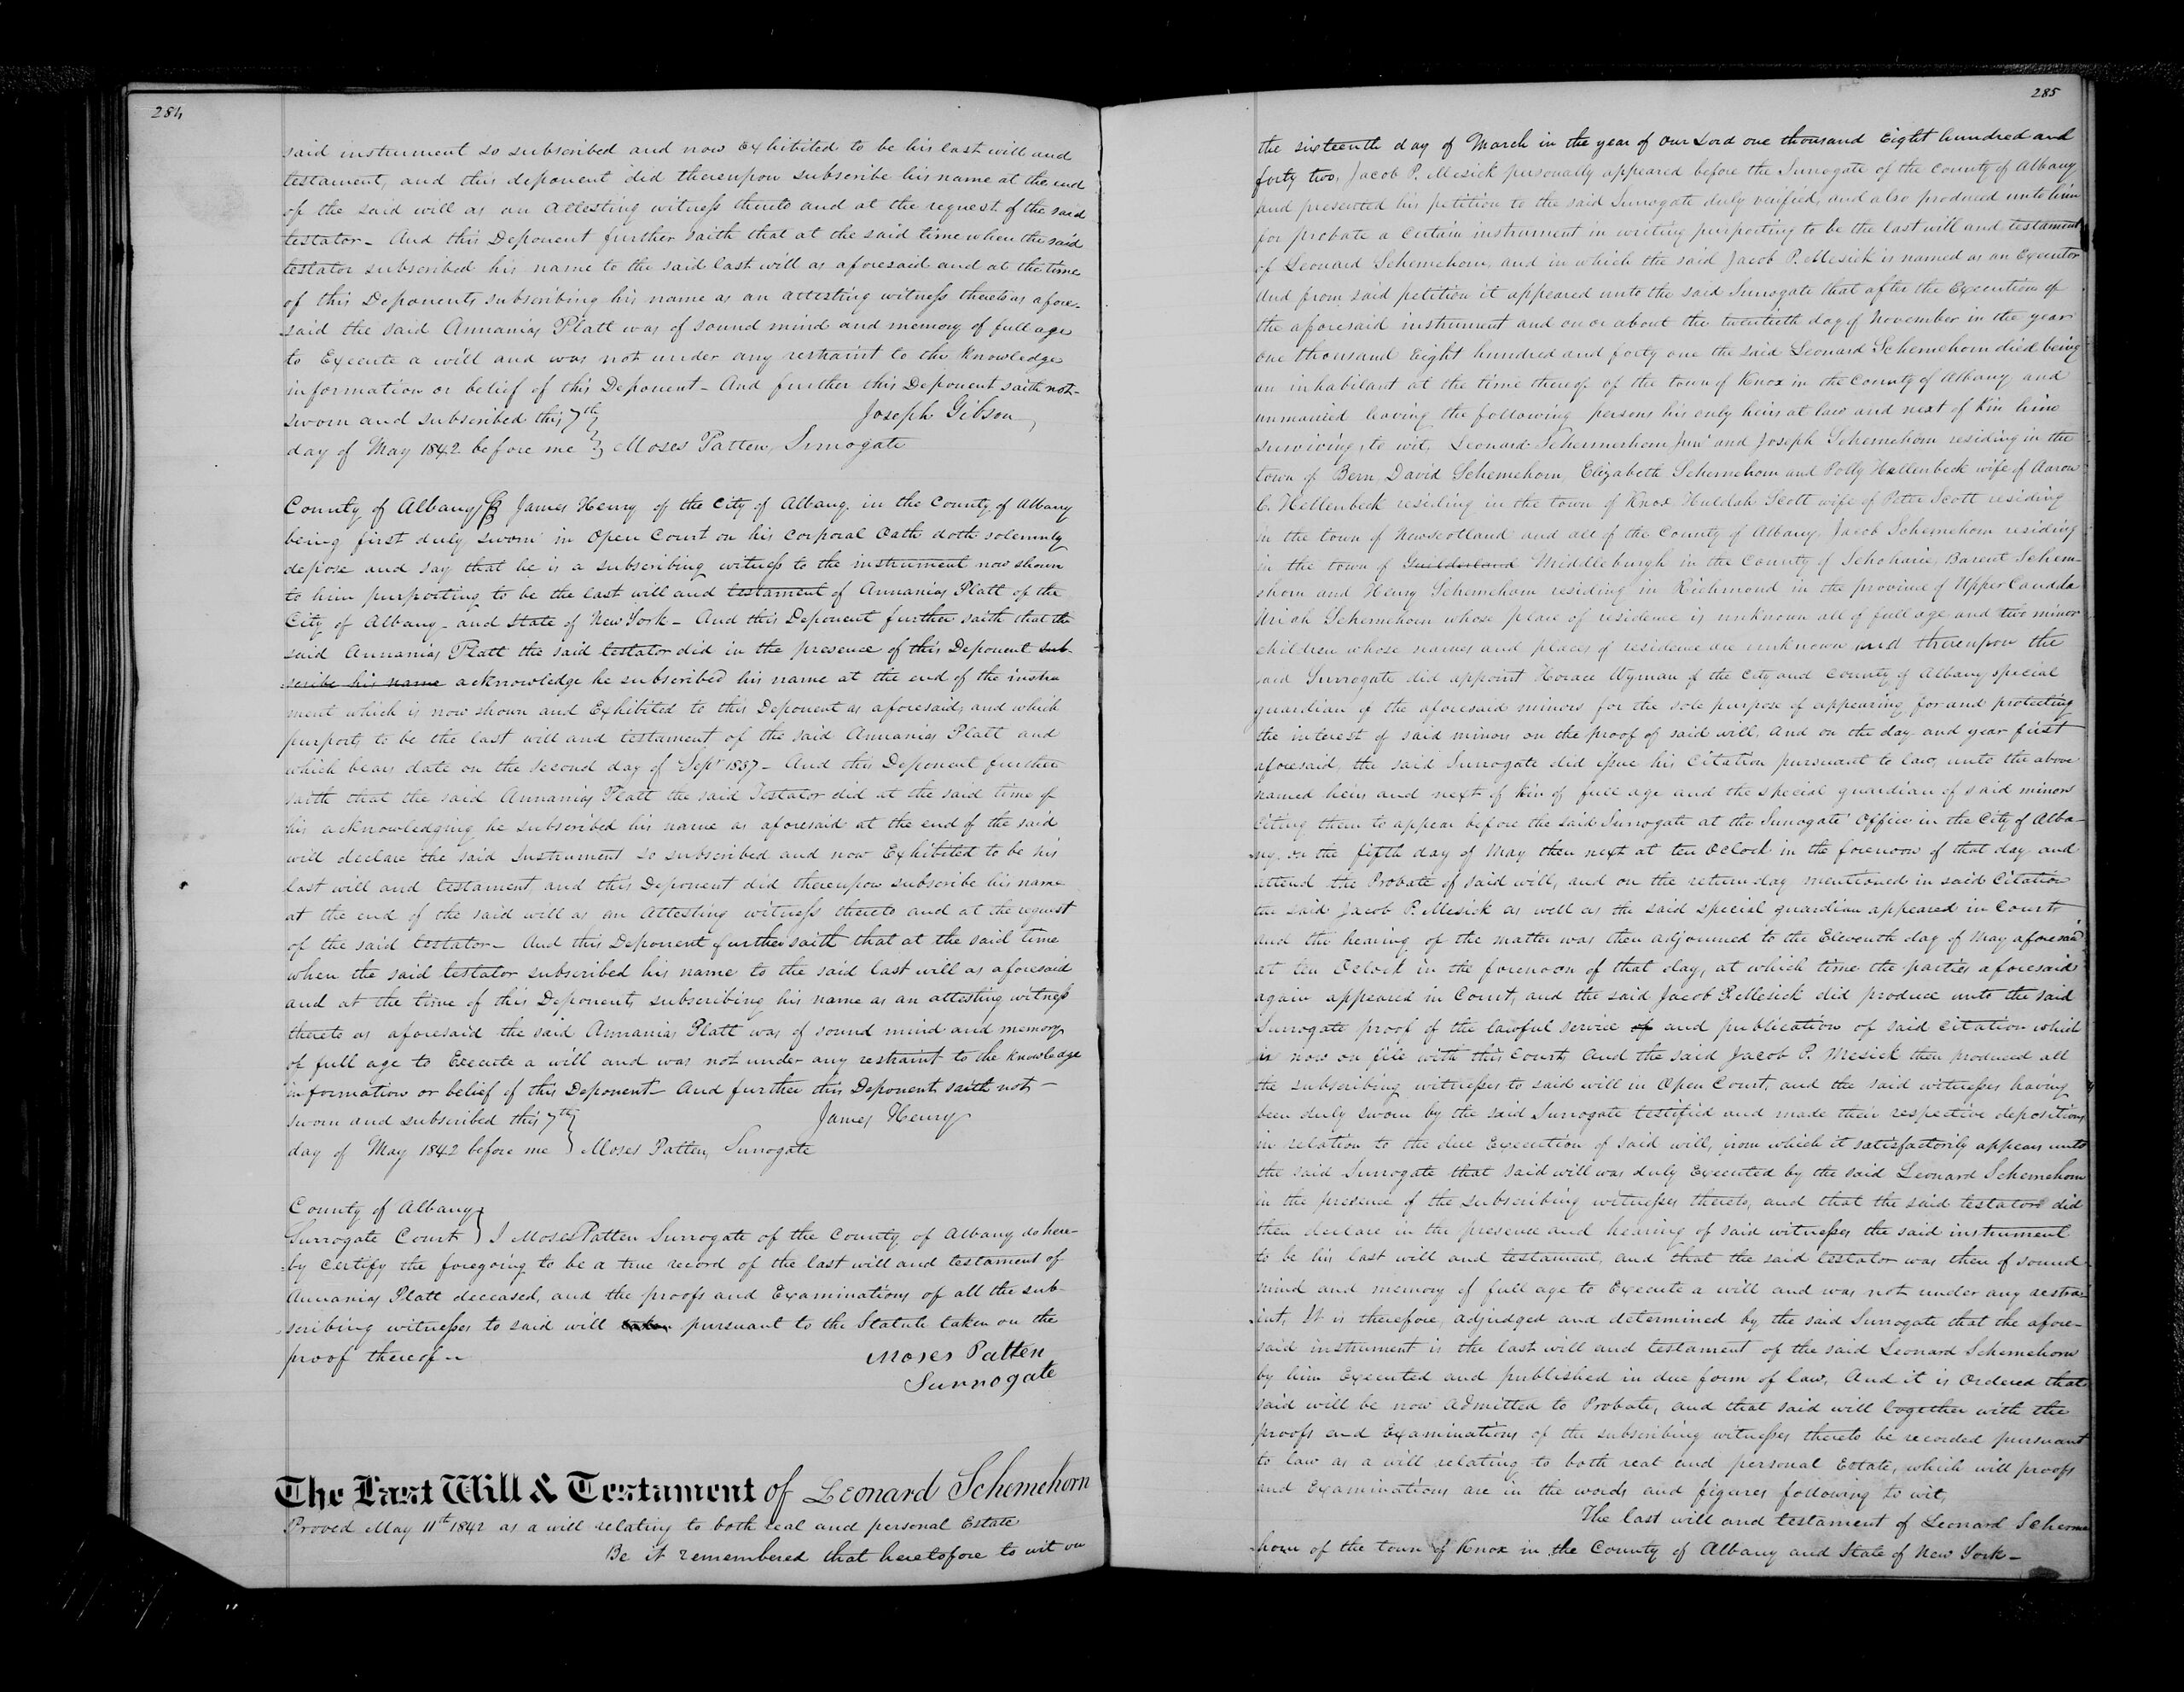 284
said instrument so subscribed and now Exhibited to be his last will and
testament, and this deponent did thereupon subscribe his name at the end
of the said will as an attesting witness thereto and at the request of the said
testator - And this Deponent further saith that at the said time when the said
testator subscribed his name to the said last will as aforesaid and at the time
of this Deponents subscribing his name as an attesting witness thereto as afore-
said the said Annanias Platt was of sound mind and memory of full age
to Execute a will and was not under any restraint to the knowledge
information or belief of this Deponent - And further this Deponent saith not -
sworn and subscribed this 7th Joseph Gibson
day of May 1842 before me } Moses Patten, Surrogate
County of Albany ss James Henry of the City of Albany in the County of Albany
being first duly sworn in Open Court on his corporal Oath doth solemnly
depose and say that he is a subscribing witness to the instrument now shown
to him purporting to be the last will and testament of Annanias Platt of the
City of Albany - and State of New York - And this Deponent further saith that the
said Annanias Platt the said testator did in the presence of this Deponent sub-
scribe his name acknowledge he subscribed his name at the end of the instru
ment which is now shown and Exhibited to this Deponent as aforesaid, and which
purports to be the last will and testament of the said Annanias Platt and
which bears date on the second day of Sept 1837 - And this Deponent further
saith that the said Annanias Platt the said Testator did at the said time of
his acknowledging he subscribed his name as aforesaid at the end of the said
will declare the said Instrument so subscribed and now Exhibited to be his
last will and testament and this Deponent did thereupon subscribe his name
at the end of the said will as an Attesting witness thereto and at the request
of the said testator - And this Deponent further saith that at the said time
when the said testator subscribed his name to the said last will as aforesaid
and at the time of this Deponents subscribing his name as an attesting witness
thereto as aforesaid the said Annanias Platt was of sound mind and memory
of full age to Execute a will and was not under any restraint to the knowledge
information or belief of this Deponent - And further this Deponent saith not -
sworn and subscribed this 7th James Henry
day of May 1842 before me } Moses Patten, Surrogate
County of Albany
Surrogate Court } I Moses Patten Surrogate of the County of Albany do here-
by Certify the foregoing to be a true record of the last will and testament of
Annanias Platt deceased, and the proofs and Examinations of all the sub-
scribing witnesses to said will taken pursuant to the Statute taken on the
proof thereof - Moses Patten
Surrogate
The Last Will & Testament of Leonard Schemehorn
Proved May 11th 1842 as a will relating to both real and personal Estate
Be it remembered that heretofore to wit on
285
the sixteenth day of March in the year of our Lord one thousand Eight hundred and
forty two, Jacob P. Mesick personally appeared before the Surrogate of the County of Albany
and presented his petition to the said Surrogate duly verified, and also produced unto him
for probate a certain instrument in writing purporting to be the last will and testament
of Leonard Schemehorn, and in which the said Jacob P. Mesick is named as an Executor
And from said petition it appeared unto the said Surrogate that after the Execution of
the aforesaid instrument and on or about the twentieth day of November in the year
one thousand Eight hundred and forty one the said Leonard Schemehorn died being
an inhabitant at the time thereof of the town of Knox in the County of Albany and
unmarried leaving the following persons his only heirs at law and next of Kin him
surviving, to wit, Leonard Schermerhorn Junr and Joseph Schemehorn residing in the
town of Bern, David Schemehorn, Elizabeth Schemehorn and Polly Hallenbeck wife of Aaron
C. Hellenbeck residing in the town of Knox Huldah Scott wife of Peter Scott residing
in the town of Newscotland and all of the County of Albany, Jacob Schemehorn residing
in the town of Guilderland Middleburgh in the County of Schoharie, Barent Schem-
ehorn and Henry Schemehorn residing in Richmond in the province of Upper Candda
Uriah Schemehorn whose place of residence is unknown all of full age and two minor
children whose names and places of residence are unknown and thereupon the
said Surrogate did appoint Horace Wyman of the City and County of Albany special
guardian of the aforesaid minors for the sole purpose of appearing for and protecting
the interest of said minors on the proof of said will, And on the day and year first
aforesaid, the said Surrogate did issue his Citation pursuant to law, unto the above
named heirs and next of kin of full age and the special guardian of said minors
Citing them to appear before the said Surrogate at the Surrogates' Office in the City of Alba-
ny, on the fifth day of May then next at ten Oclock in the forenoon of that day and
attend the Probate of said will, and on the return day mentioned in said Citation
the said Jacob P. Mesick as well as the said special guardian appeared in Court
and the hearing of the matter was then adjourned to the Eleventh day of May aforesaid
at ten Oclock in the forenoon of that day, at which time the parties aforesaid
again appeared in Court, and the said Jacob P. Mesick did produce unto the said
Surrogate proof of the lawful service of and publication of said citation which
is now on file with this Court And the said Jacob P. Mesick then produced all
the subscribing witnesses to said will in Open Court, and the said witnesses having
been duly sworn by the said Surrogate testified and made their respective depositions
in relation to the due Execution of said will, from which it satisfactorily appears unto
the said Surrogate that said will was duly Executed by the said Leonard Schemehorn
in the presence of the subscribing witnesses thereto, and that the said testator did
then declare in the presence and hearing of said witnesses the said instrument
to be his last will and testament, and that the said testator was then of sound
mind and memory of full age to Execute a will and was not under any restra-
int, It is therefore, adjudged and determined by the said Surrogate that the afore-
said instrument is the last will and testament of the said Leonard Schemehorn
by him Executed and published in due form of law, And it is Ordered that
said will be now admitted to Probate, and that said will together with the
proofs and Examinations of the subscribing witnesses thereto be recorded pursuant
to law as a will relating to both real and personal Estate, which will proofs
and Examinations are in the words and figures following to wit,
The last will and testament of Leonard Scherme
horn of the town of Knox in the County of Albany and State of New York -